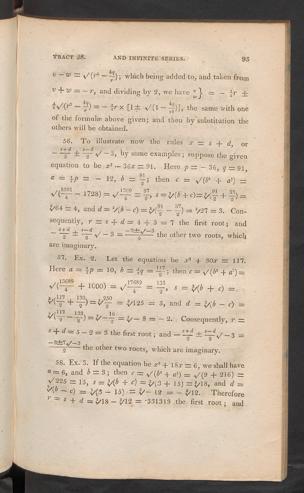 TRACT 28. AND INFINITE SERIES. 95
v − w = √(r² − 4q/r); which being added to, and taken from
v + w = − r, and dividing by 2, we have v/w} = − ½r ±
½√(r² − 4q/r) = − ½r × [1 ± √(1 − 4q/r³)], the same with one
of the formulæ above given; and then by substitution the
others will be obtained.
56. To illustrate now the rules x = s + d, or
− (s+d)/2 ± (s−d)/2 √−3, by some examples; suppose the given
equation to be x³ − 36x = 91. Here p = − 36, q = 91,
a = ⅓p = − 12, b = 91/2; then c = √(b² + a³) =
√(8281/4 − 1728) = √1369/4 = 37/2, s = ∛(b + c) = ∛(91/2 + 37/2) =
∛64 = 4, and d = ∛(b − c) = ∛(91/2 − 37/2) = ∛27 = 3. Con-
sequently, r = s + d = 4 + 3 = 7 the first root; and
− (s+d)/2 ± (s−d)/2 √−3 = the other two roots, which
are imaginary.
57. Ex. 2. Let the equation be x³ + 30x = 117.
Here a = ⅓p = 10, b = ½q = 117/2; then c = √(b² + a³) =
√(13689/4 + 1000) = √17689/4 = 133/2, s = ∛(b + c) =
∛(117/2 + 133/2) = ∛250/2 = ∛125 = 5, and d = ∛(b − c) =
∛(117/2 − 133/2) = ∛−16/2 = ∛−8 = − 2. Consequently, r =
s + d = 5 − 2 = 3 the first root; and − (s+d)/2 ± (s−d)/2 √−3 =
the other two roots, which are imaginary.
58. Ex. 3. If the equation be x³ + 18x = 6, we shall have
a = 6, and b = 3; then c = √(b² + a³) = √(9 + 216) =
√225 = 15, s = ∛(b + c) = ∛(3 + 15) = ∛18, and d =
∛(b − c) = ∛(3 − 15) = ∛−12 = − ∛12. Therefore
r = s + d = ∛18 − ∛12 = ·331313 the first root; and